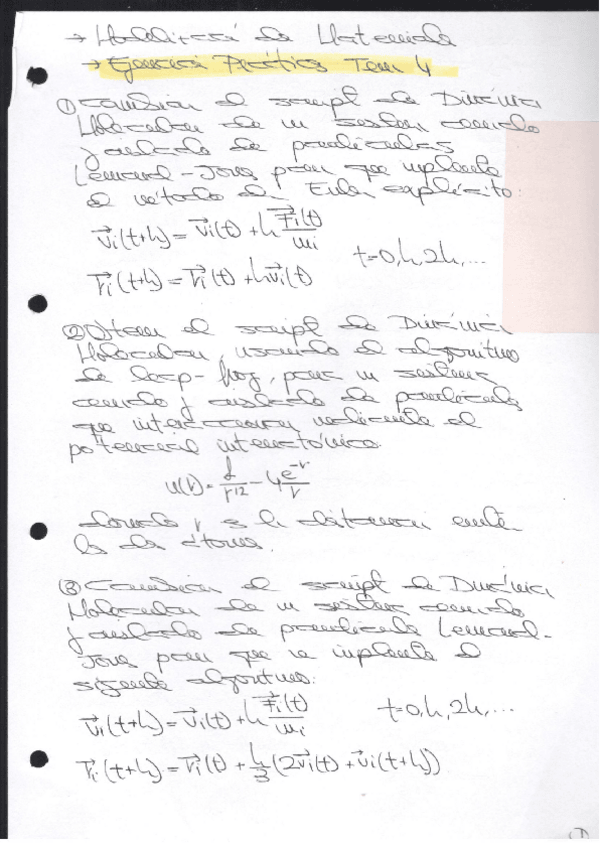 → Modelización de Materiales
→ Ejercicios Prácticos Tema 4
① Cambiar el script de Dinámica
Molecular de un sistema cerrado
y aislado de partículas
Lennard-Jones para que implemente
el método de Euler explícito:
v⃗i(t+h) = v⃗i(t) + h F⃗i(t)/mi
t=0,h,2h,...
r⃗i(t+h) = r⃗i(t) + h v⃗i(t)
② el script de Dinámica
Molecular, usando el algoritmo
de leap-frog, para un sistema
cerrado y aislado de partículas
que interaccionan mediante el
potencial interatómico
u(r) = 1/r^12 - 4 e^-r/r
donde r es la distancia entre
los dos átomos.
③ Cambiar el script de Dinámica
Molecular de un sistema cerrado
y aislado de partículas Lennard-
Jones para que se implemente el
siguiente algoritmo:
v⃗i(t+h) = v⃗i(t) + h F⃗i(t)/mi
t=0,h,2h,...
r⃗i(t+h) = r⃗i(t) + h/3 (2v⃗i(t) + v⃗i(t+h))